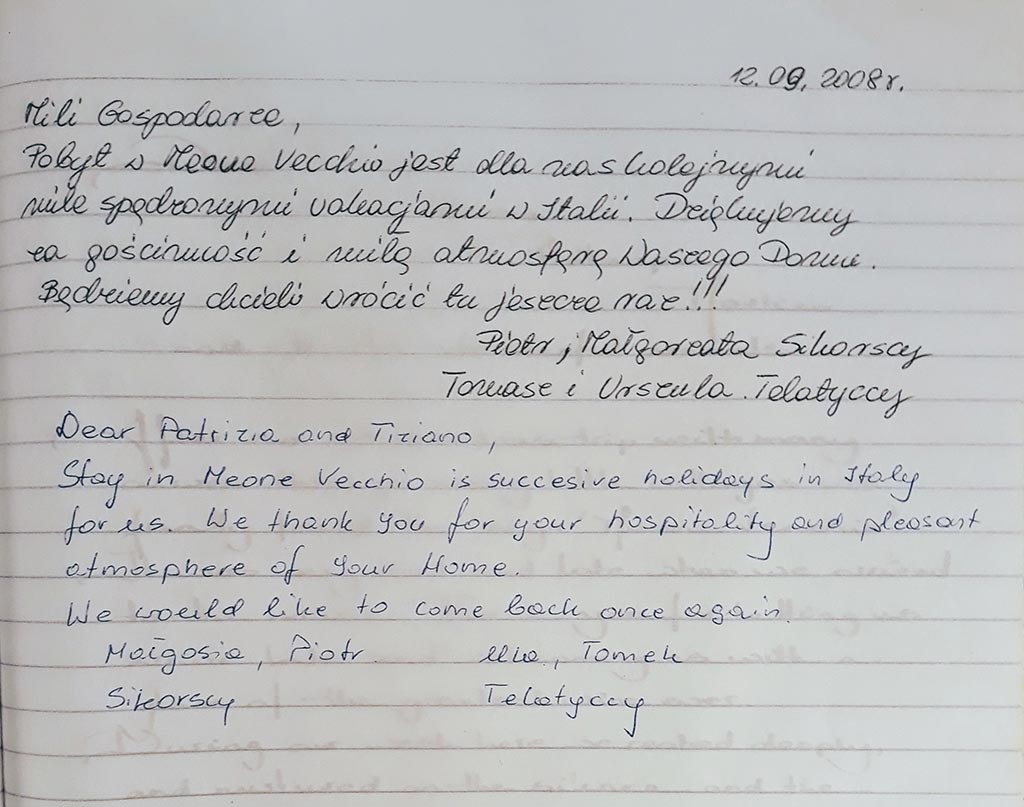 12.09.2008r.
Mili Gospodarze,
Pobyt w Meone Vecchio jest dla nas kolejnymi
mile spędzonymi wakacjami w Italii. Dziękujemy
za gościnność i miłą atmosferę Waszego Domu.
Będziemy chcieli wrócić tu jeszcze raz!!!
Piotr, Małgorzata Sikorscy
Tomasz i Urszula Telatyccy
Dear Patrizia and Tiziano,
Stay in Meone Vecchio is succesive holidays in Italy
for us. We thank you for your hospitality and pleasant
atmosphere of your Home.
We would like to come back once again.
Małgosia, Piotr Ulka, Tomek
Sikorscy Telatyccy